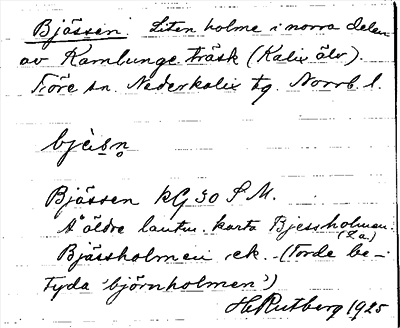 Bjässen. Liten holme i norra delen
av Kamlunge träsk (Kalix älv).
Töre sn. Nederkalix tg. Norrb. l.
Bjässen kG 30 S M.
Å äldre lantm. karta Bjessholmen.
Bjässholmen ek. - (Torde be-
tyda 'björnholmen')
H Rutberg 1925